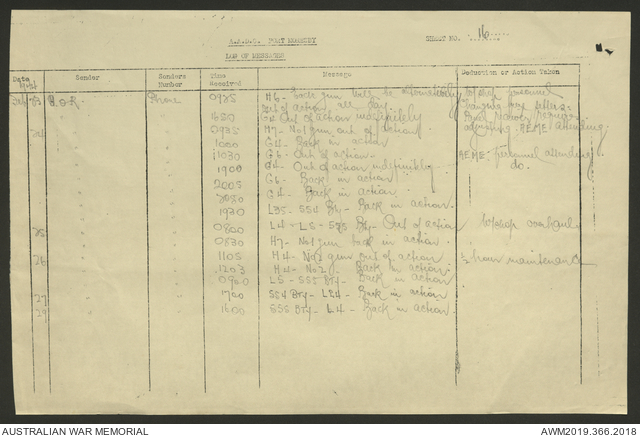 A.A.D.C. PORT MORESBY
SHEET NO. 16
LOG OF MESSAGES
Date Sender Senders Number Time Received Message Deduction or Action Taken
23 G.O.R. Phone 0925 H6 - Each gun will be alternatively
out of action all day.
1650 G4 Out of action indefinitely
0935 H7 - No1 gun out of action AEME attending.
1000 G4 - Back in action
1030 G6 - Out of action. AEME personnel attending.
1900 G4 - Out of action indefinitely. do.
G6 - Back in action
2005 G4 - Back in action.
1930 - 554 Bty - Back in action.
25 0800 L4 - L5 - 555 Bty - Out of action
0830 H7 - No1 gun back in action.
26 1105 H4 - No2 gun out of action ½ hour maintenance
1205 H4 - No2 - Back in action.
0900 L5 - 555 Bty - Back in action
27 1700 554 Bty - - Back in action
29 1600 555 Bty - L4 - Back in action.
AUSTRALIAN WAR MEMORIAL
AWM2019.366.2018